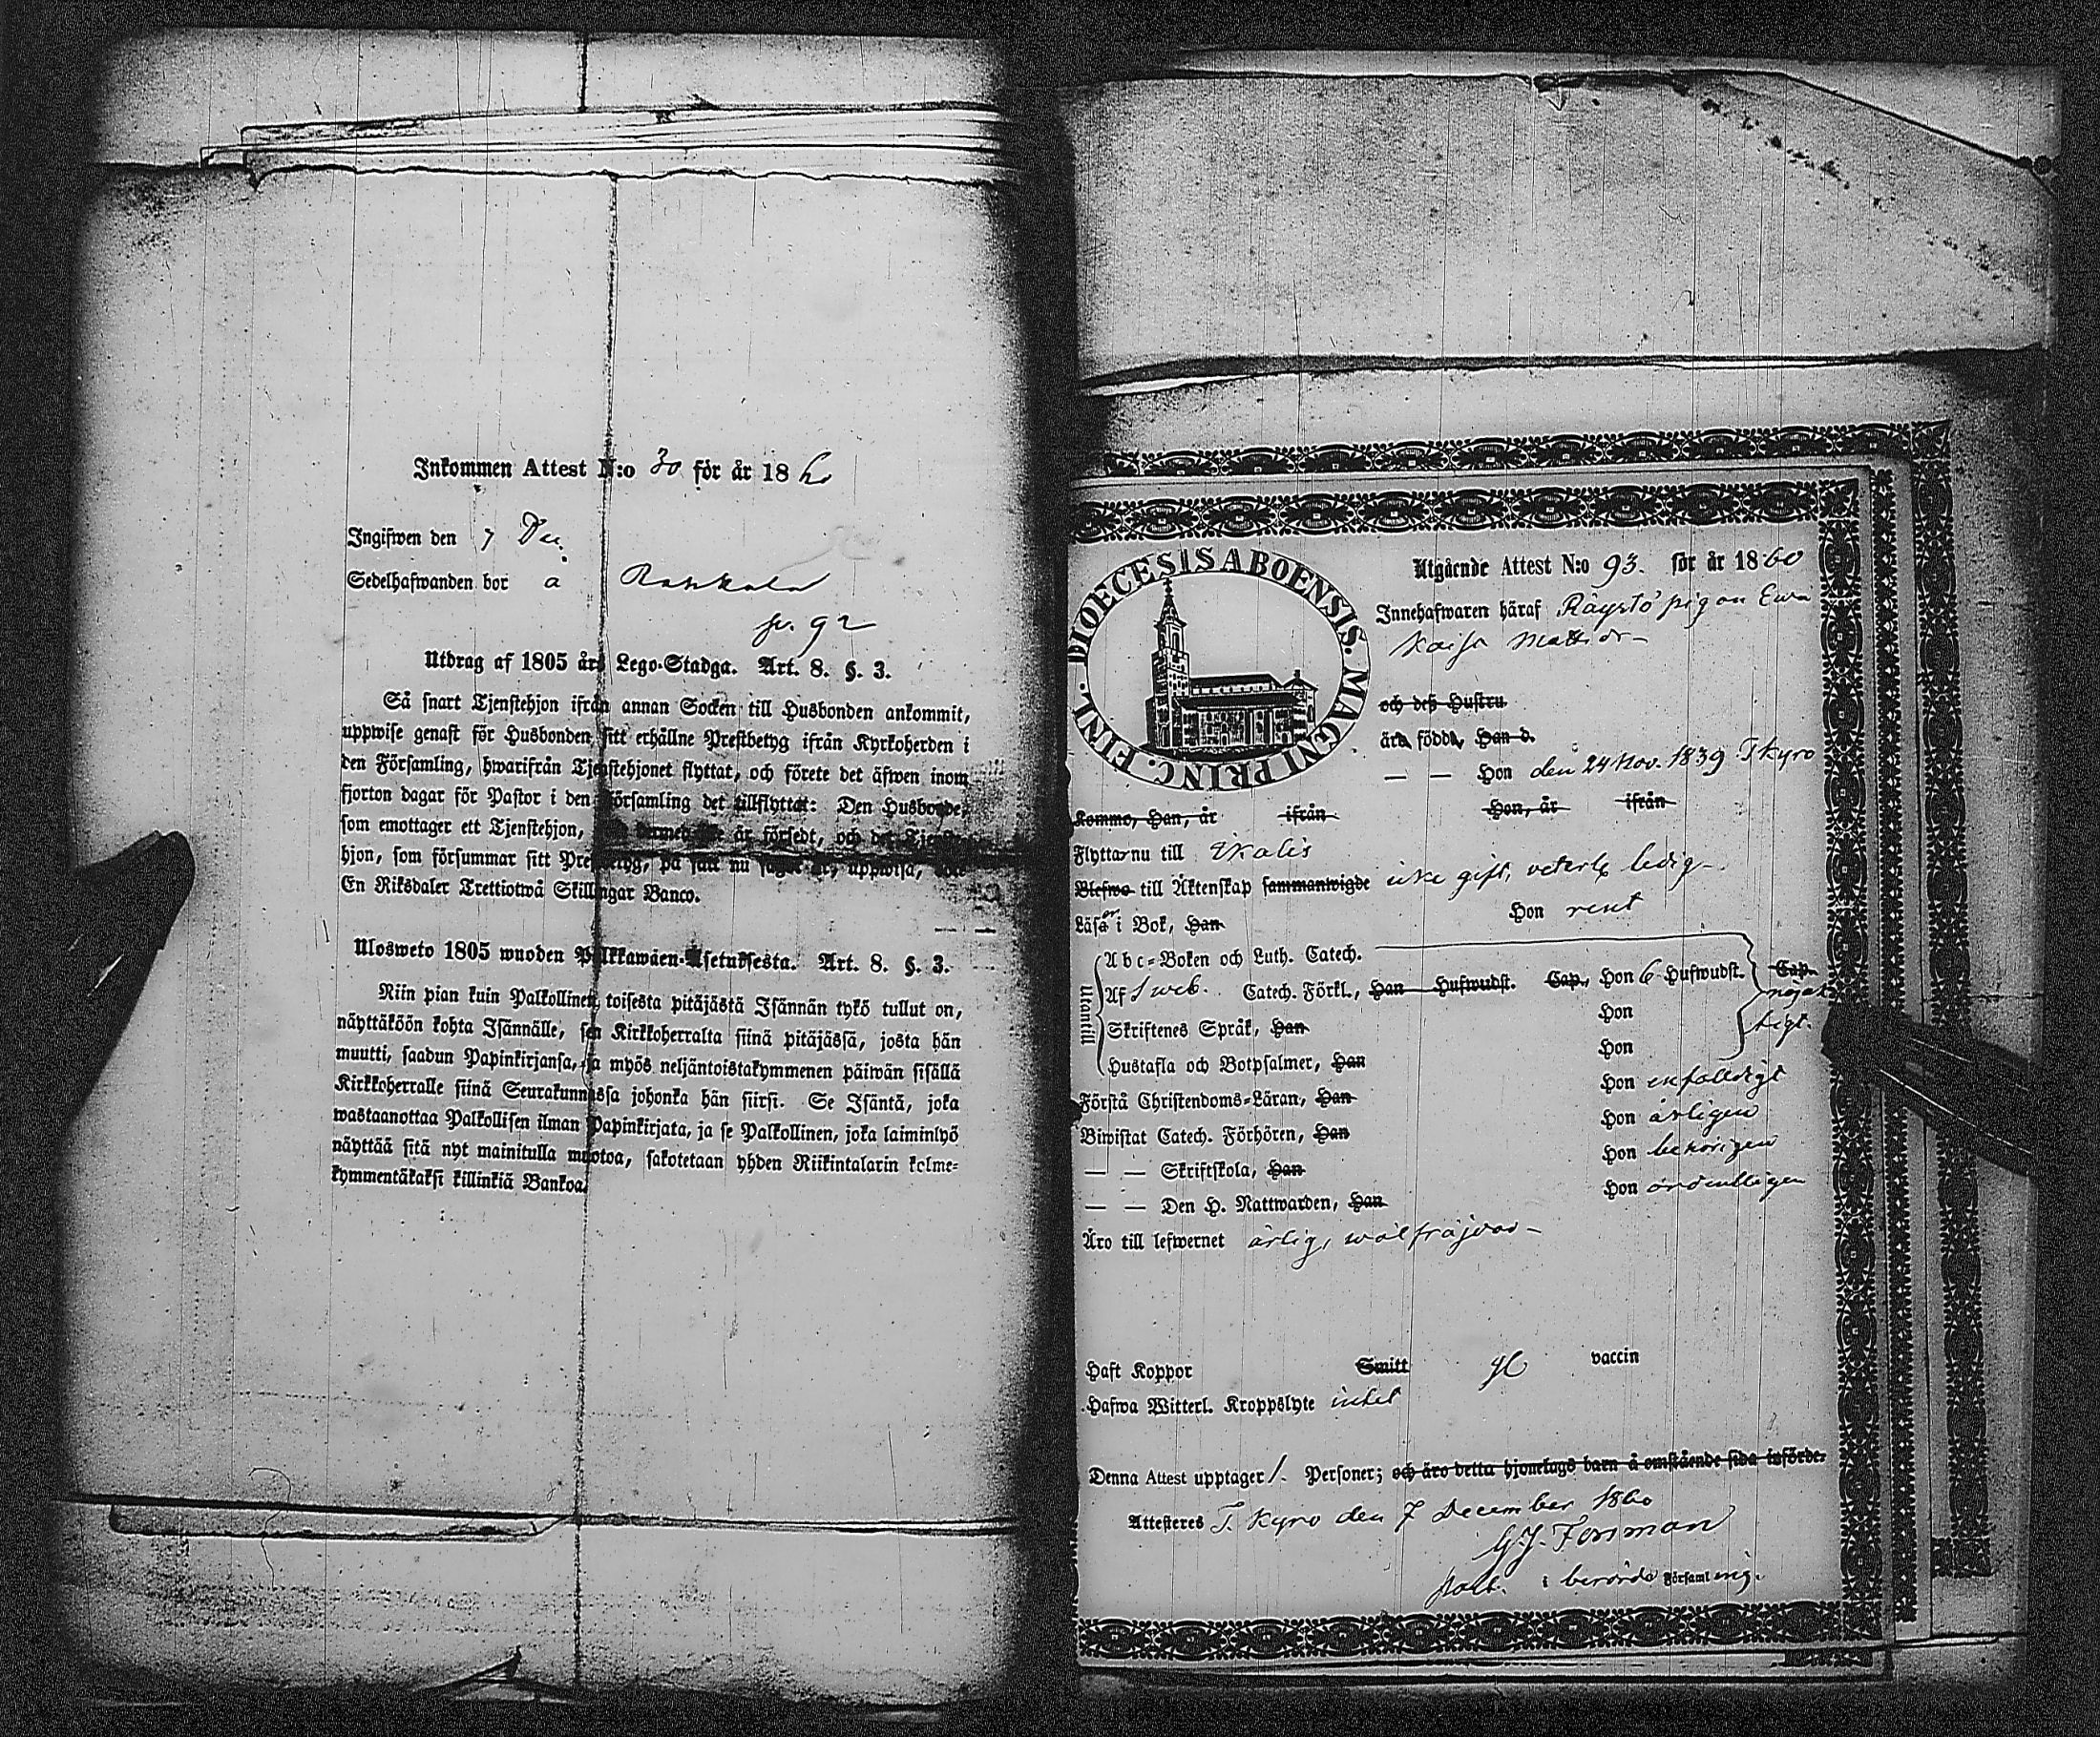 Inkommen Attest N:o 30 för år 18 60
Ingifwen den 7 Dec.
Sedelhafwanden bor å
sv. 92
Utdrag af 1805 års Lego-Stadga. Art. 8. §. 3.
Så snart Tjenstehjon ifrån annan Socken till Husbonden ankommit,
uppwise genast för Husbonden sitt erhållne Prestbetyg ifrån Kyrkoherden i
den Församling, hwarifrån Tjenstehjonet flyttat, och förete det äfwen inom
fjorton dagar för Pastor i den Församling det tillflyttat: Den Husbonde,
som emottager ett Tjenstehjon, dermed är försedt, och det Tjenste-
hjon, som försummar sitt Prestbetyg, på sätt nu sagdt är, uppwisa,
En Riksdaler Trettiotwå Skillingar Banco.
Ulosweto 1805 wuoden Palkkawäen-Asetuksesta. Art. 8. §. 3.
Niin pian kuin Palkollinen toisesta pitäjästä Isännän tykö tullut on,
näyttäköön kohta Isännälle, sen Kirkkoherralta siinä pitäjässä, josta hän
muutti, saadun Papinkirjansa, ja myös neljäntoistakymmenen päiwän sisällä
Kirkkoherralle siinä Seurakunnassa johonka hän siirsi. Se Isäntä, joka
wastaanottaa Palkollisen ilman Papinkirjata, ja se Palkollinen, joka laiminlyö
näyttää sitä nyt mainitulla muotoa, sakotetaan yhden Riikintalarin kolme-
kymmentäkaksi killinkiä Bankoa.
DIOECESIS ABOENSIS. MAGNI PRINC. FINL.
Utgående Attest N:o 93. för år 1860
Innehafwaren häraf Räystö pigan Ewa
Kaisa Mattsdr
och deß Hustru
äro födda, Han d.
— — Hon den 24 Nov. 1839 T kyro
Komme, Han, år ifrån Hon, år ifrån
Flyttar nu till Ikalis
Blefwo till Äktenskap sammanwigde icke gift, veterl. ledig
Läser i Bok, Han Hon rent
Utantill
Abc-Boken och Luth. Catech.
Af Sweb. Catech. Förkl., Han Hufwudst. Cap., Hon 6 Hufwudst. Cap.
nöjak
tigt.
Skriftenes Språk, Han Hon
Hustafla och Botpsalmer, Han Hon
Förstå Christendoms-Läran, Han Hon enfaldigt
Biwistat Catech. Förhören, Han Hon årligen
— — Skriftskola, Han Hon behörigen
— — Den H. Nattwarden, Han Hon ordentligen
Äro till lefwernet ärlig, wälfräjdad
Haft Koppor Smitt vaccin
Hafwa Witterl. Kroppslyte intet
Denna Attest upptager 1. Personer; och äro detta hjonelags barn å omstående sida införde.
Attesteres T. Kyro den 7 December 1860
G. J. Forsman
Past. i berörda Församling.